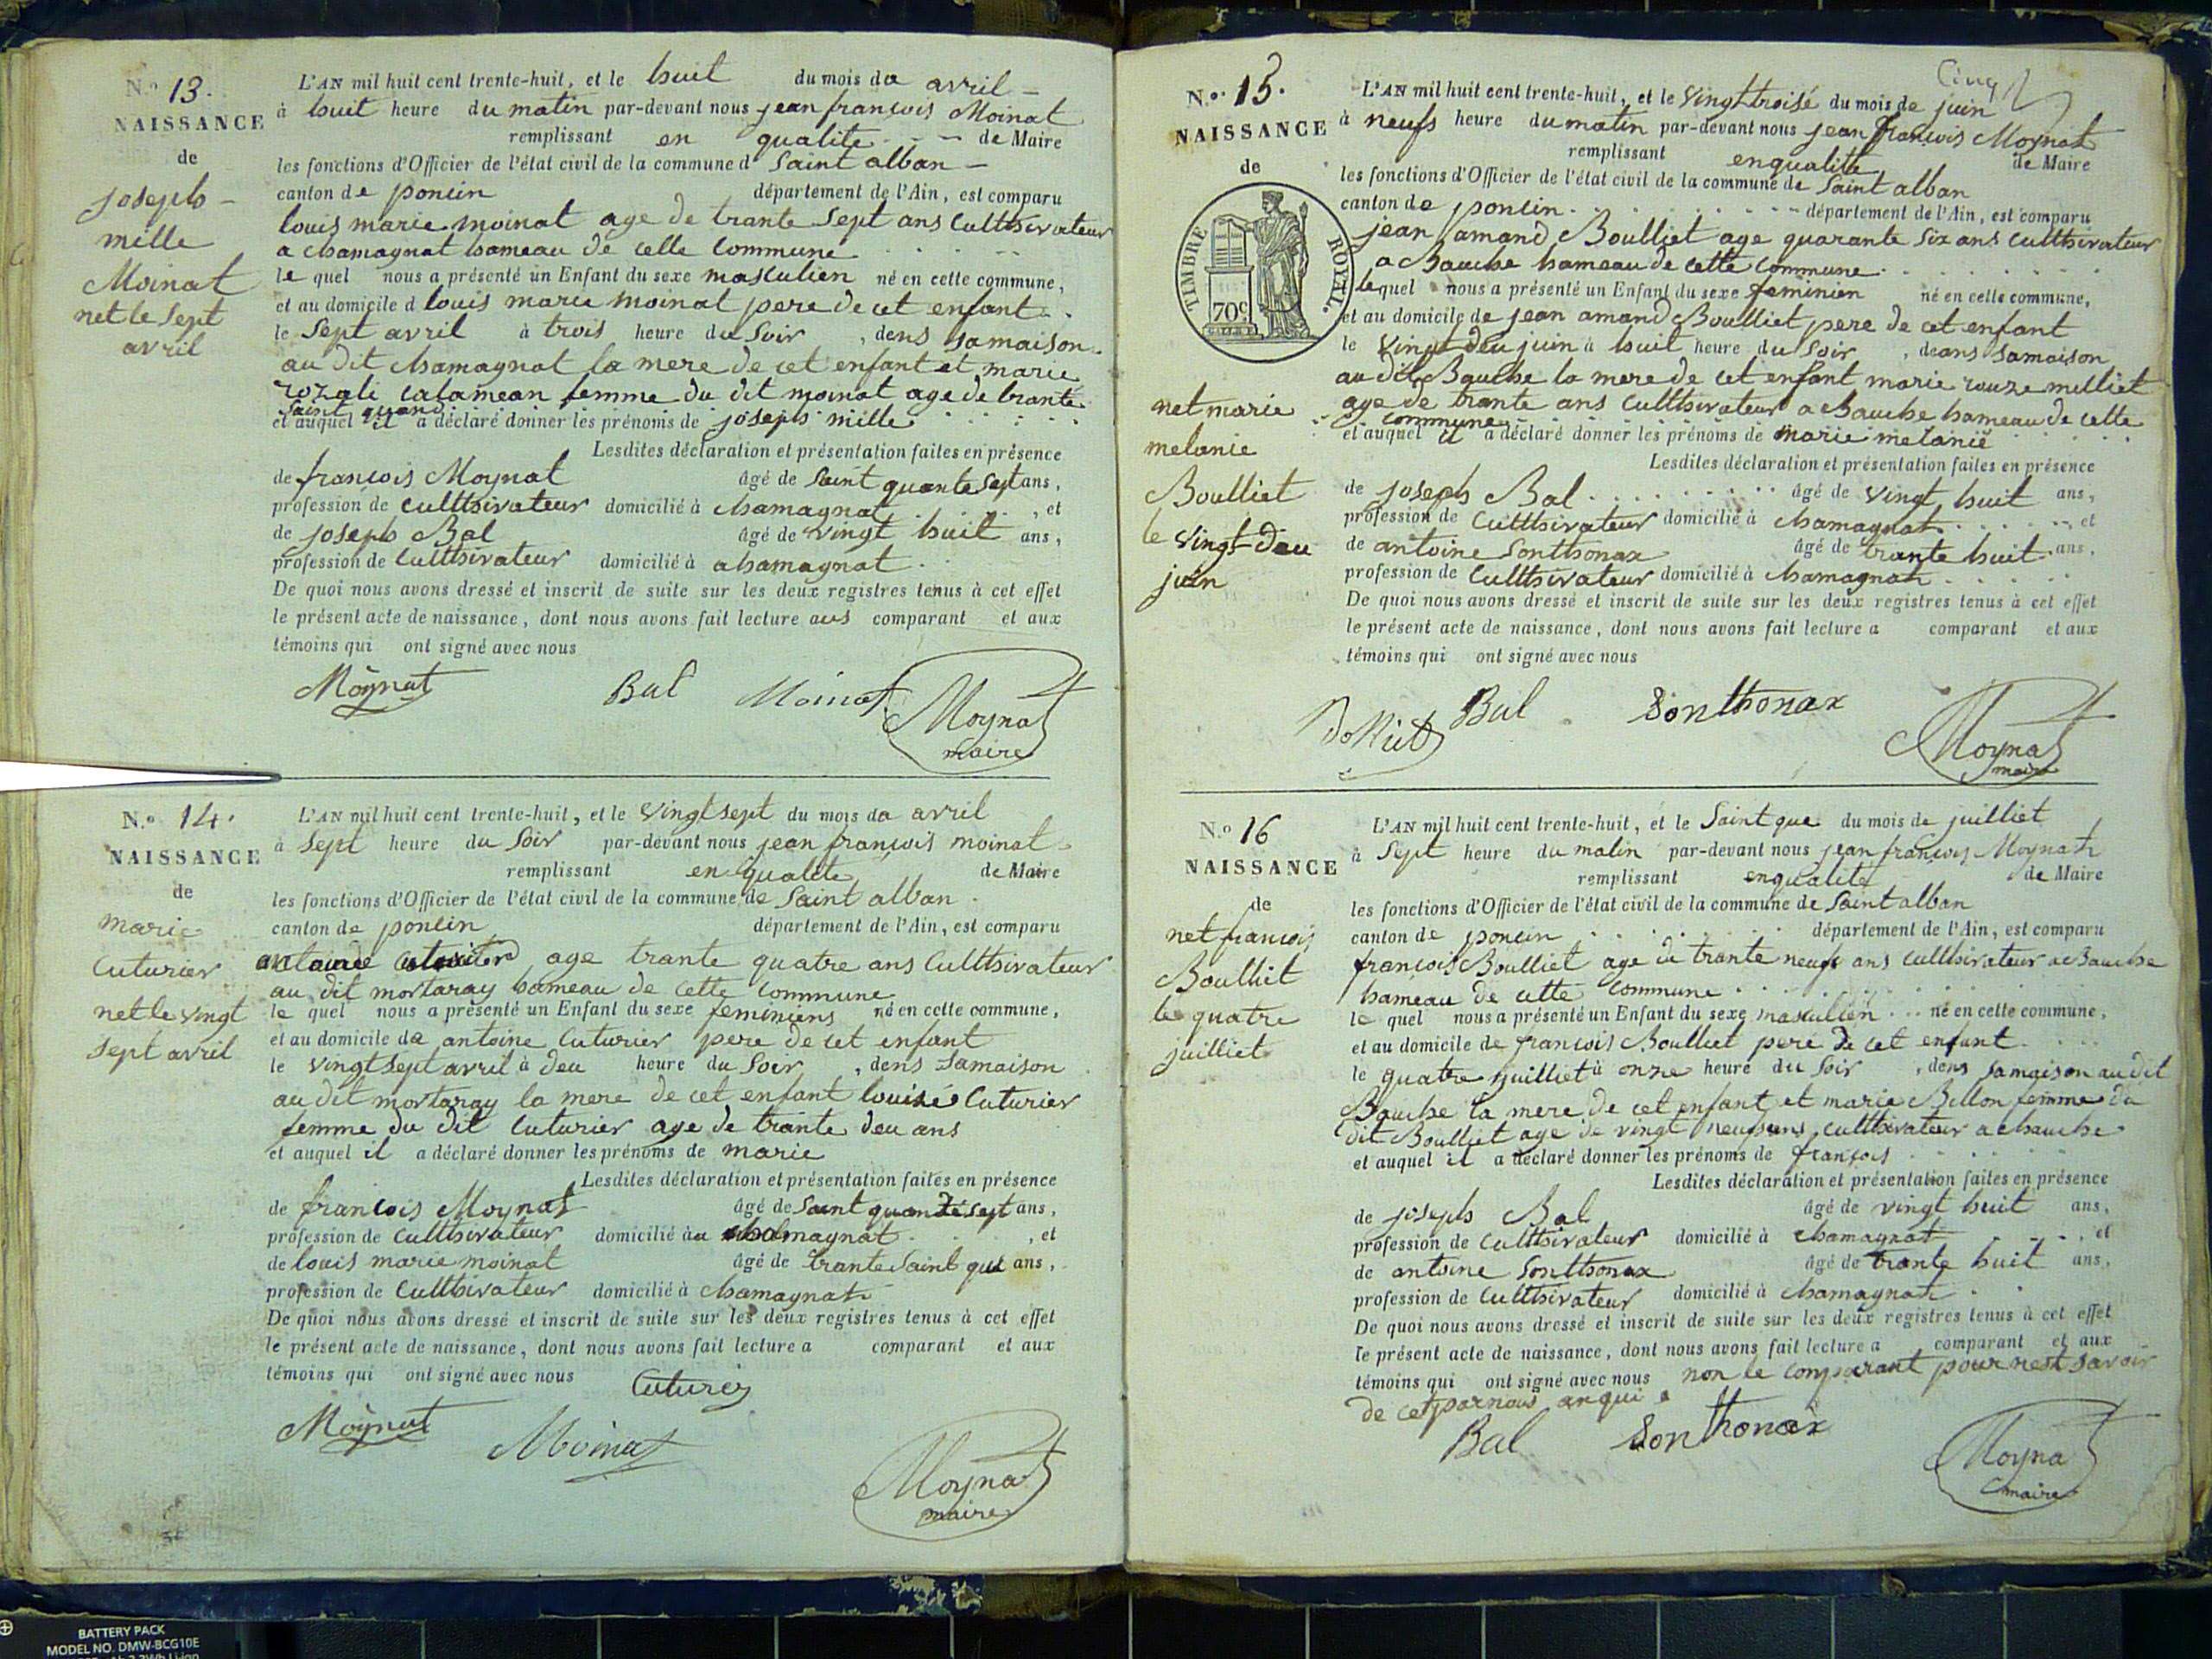 N.o 13.
NAISSANCE
de
joseph -
mille
Moinat
net le Sept
avril
L'AN mil huit cent trente-huit, et le huit du mois de avril -
à huit heure du matin par-devant nous jean françois Moinat
remplissant en qualite - - - de Maire
les fonctions d'Officier de l'état civil de la commune d Saint alban -
canton de poncin département de l'Ain, est comparu
louis marie moinat age de trante Sept ans Culthivateur
a chamagnat hameau de cette commune
le quel nous a présenté un Enfant du sexe masculien né en cette commune,
et au domicile d louis marie moinat pere de cet enfant
le Sept avril à trois heure du Soir , dens sa maison
au dit chamagnat la mere de cet enfant et marie
rozali calamean femme du dit moinat age de trante
Saint quand
et auquel il a déclaré donner les prénoms de joseph mille
Lesdites déclaration et présentation faites en présence
de françois Moynat âgé de Saint quante Sept ans,
profession de culthivateur domicilié à chamagnat , et
de joseph Bal âgé de vingt huit ans,
profession de Culthivateur domicilié à ahamagnat
De quoi nous avons dressé et inscrit de suite sur les deux registres tenus à cet effet
le présent acte de naissance, dont nous avons fait lecture aus comparant et aux
témoins qui ont signé avec nous
Moynat Bal Moinat Moynat
maire
N.o 14.
NAISSANCE
de
marie
Cuturier
net le vingt
Sept avril
L'AN mil huit cent trente-huit, et le vingt sept du mois da avril
à Sept heure du Soir par-devant nous jean françois moinat
remplissant en qualité de Maire
les fonctions d'Officier de l'état civil de la commune de Saint alban
canton de poncin département de l'Ain, est comparu
age trante quatre ans Culthivateur
au dit mortaray hameau de cette commune
le quel nous a présenté un Enfant du sexe feminiens né en cette commune,
et au domicile de antoine Cuturier pere de cet enfant
le vingt sept avril à deu heure du Soir , dens sa maison
au dit mortaray la mere de cet enfant louise Cuturier
femme du dit Cuturier age de trante deu ans
et auquel il a déclaré donner les prénoms de marie
Lesdites déclaration et présentation faites en présence
de françois Moynat âgé de Saint quante Sept ans,
profession de Culthivateur domicilié àu chamagnat , et
de louis marie moinat âgé de trante Saint que ans,
profession de Culthivateur domicilié à chamagnat
De quoi nous avons dressé et inscrit de suite sur les deux registres tenus à cet effet
le présent acte de naissance, dont nous avons fait lecture a comparant et aux
témoins qui ont signé avec nous Cuturier
Moynat Moinat Moynat
maire
Cinq
N.o 15.
NAISSANCE
de
TIMBRE ROYAL.
70c
net marie
melanie
Boulliet
le vingt-deu
juin
L'AN mil huit cent trente-huit, et le vingt troisé du mois de juin
à neufs heure du matin par-devant nous jean françois Moynat
remplissant en qualite de Maire
les fonctions d'Officier de l'état civil de la commune de Saint alban
canton de poncin département de l'Ain, est comparu
jean amand Boulliet age quarante Six ans Culthivateur
a Bauche hameau de cette commune
le quel nous a présenté un Enfant du sexe feminien né en cette commune,
et au domicile de jean amand Boulliet pere de cet enfant
le vingt deu juin à huit heure du Soir , deans sa maison
au dit Bauche la mere de cet enfant marie rouze melliet
age de trante ans Culthivateur a chauche hameau de cette
commune
et auquel il a déclaré donner les prénoms de marie melanie
Lesdites déclaration et présentation faites en présence
de joseph Bal âgé de vingt huit ans,
profession de Culthivateur domicilié à chamagnat , et
de antoine Sonthonax âgé de trante huit ans,
profession de Culthivateur domicilié à chamagnat
De quoi nous avons dressé et inscrit de suite sur les deux registres tenus à cet effet
le présent acte de naissance, dont nous avons fait lecture a comparant et aux
témoins qui ont signé avec nous
Bal Sonthonax Moynat
maire
N.o 16
NAISSANCE
de
net françois
Boulliet
le quatre
juilliet
L'AN mil huit cent trente-huit, et le Saint que du mois de juilliet
à Sept heure du matin par-devant nous jean françois Moynat
remplissant en qualité de Maire
les fonctions d'Officier de l'état civil de la commune de Saint alban
canton de poncin département de l'Ain, est comparu
françois Boulliet age de trante neufs ans culthivateur a Bauche
hameau de cette commune
le quel nous a présenté un Enfant du sexe masculien né en cette commune,
et au domicile de françois Boulliet pere de cet enfant
le quatre juilliet à onze heure du Soir , dens sa maison au dit
Bauche la mere de cet enfant et marie Billon femme du
dit Boulliet age de vingt neufs ans culthivateur a chauche
et auquel il a déclaré donner les prénoms de françois
Lesdites déclaration et présentation faites en présence
de joseph Bal âgé de vingt huit ans,
profession de Culthivateur domicilié à chamagnat , et
de antoine Sonthonax âgé de trante huit ans,
profession de Culthivateur domicilié à chamagnat
De quoi nous avons dressé et inscrit de suite sur les deux registres tenus à cet effet
le présent acte de naissance, dont nous avons fait lecture a comparant et aux
témoins qui ont signé avec nous non le comparant pour nest savoir
de cet par nous anqui
Bal Sonthonax Moynat
maire
BATTERY PACK
MODEL NO. DMW-BCG10E